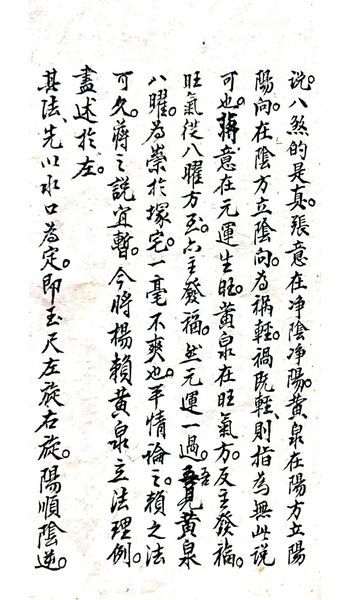 说八煞的是真。張意在净陰净陽。黄泉在陽方立陽
陽向。在陰方立陰向。為祸輕。禍既輕、則指為無此説
可也。蔣意在元運生旺。黄泉在旺氣方。反主發福。
旺氣從八曜方至。亦主發福。然元運一過。吾見黄泉
八曜。為祟於塚宅。一毫不爽也。平情論之。賴之法
可久。蔣之説宜暫。今將楊賴黄泉立法理例。
盡述於左。
其法、先以水口為定。即玉尺左旋右旋。陽順陰逆。